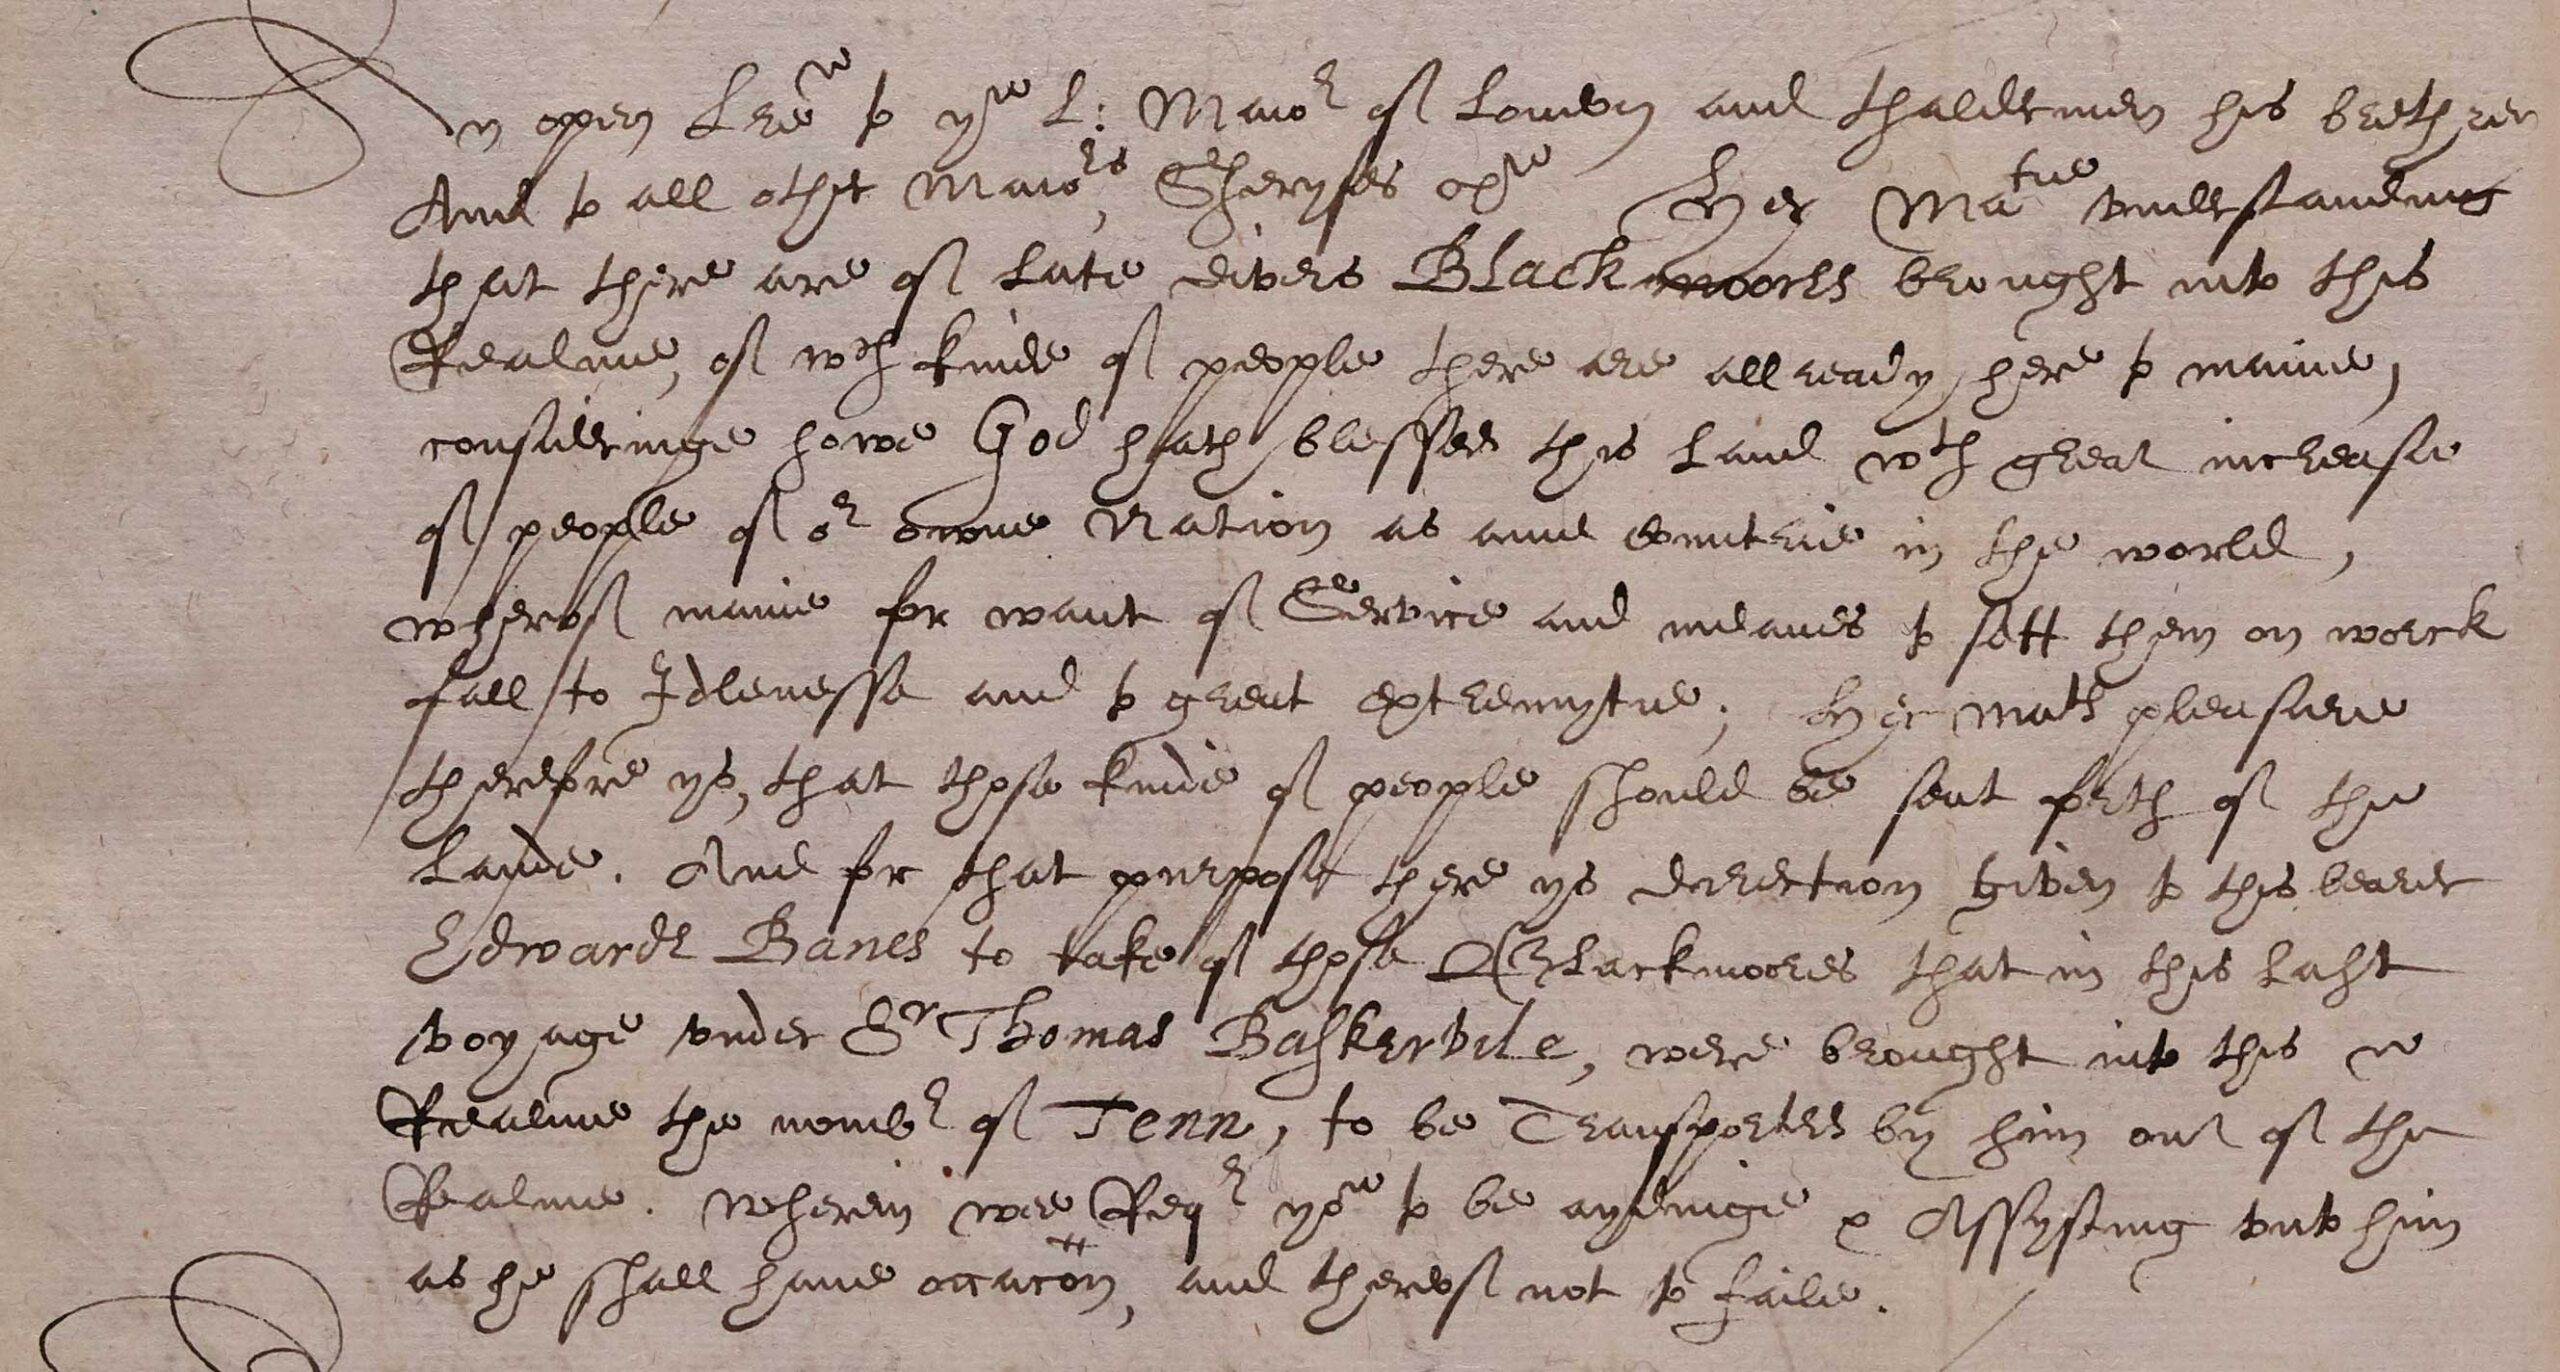 An open Lre to ye L: Maior of London and thaldermen his brethren
And to all other Maiors, Sheryfes &c. Her Matie vnderstanding
that there are of late divers Blackmoores brought into this
Realme, of wch kinde of people there are allready here to manie,
consideringe howe God hath blessed this land wth great increase
of people of or owne Nation as anie countrie in the world,
wherof manie for want of Service and meanes to sett them on worck
fall to Idlenesse and to great extremytie; Her Mats pleasure
therefore ys, that those kinde of people should be sent forth of the
lande. And for that purpose there ys direction given to this bearer
Edwarde Banes to take of those Blackmoores that in this last
voyage vnder Sr Thomas Baskervile, were brought into this
Realme the nombr of Tenn, to be Transported by him out of the
Realme. Wherein wee Reqr you to be aydinge & Assysting vnto him
as he shall have occacon, and therof not to faile.